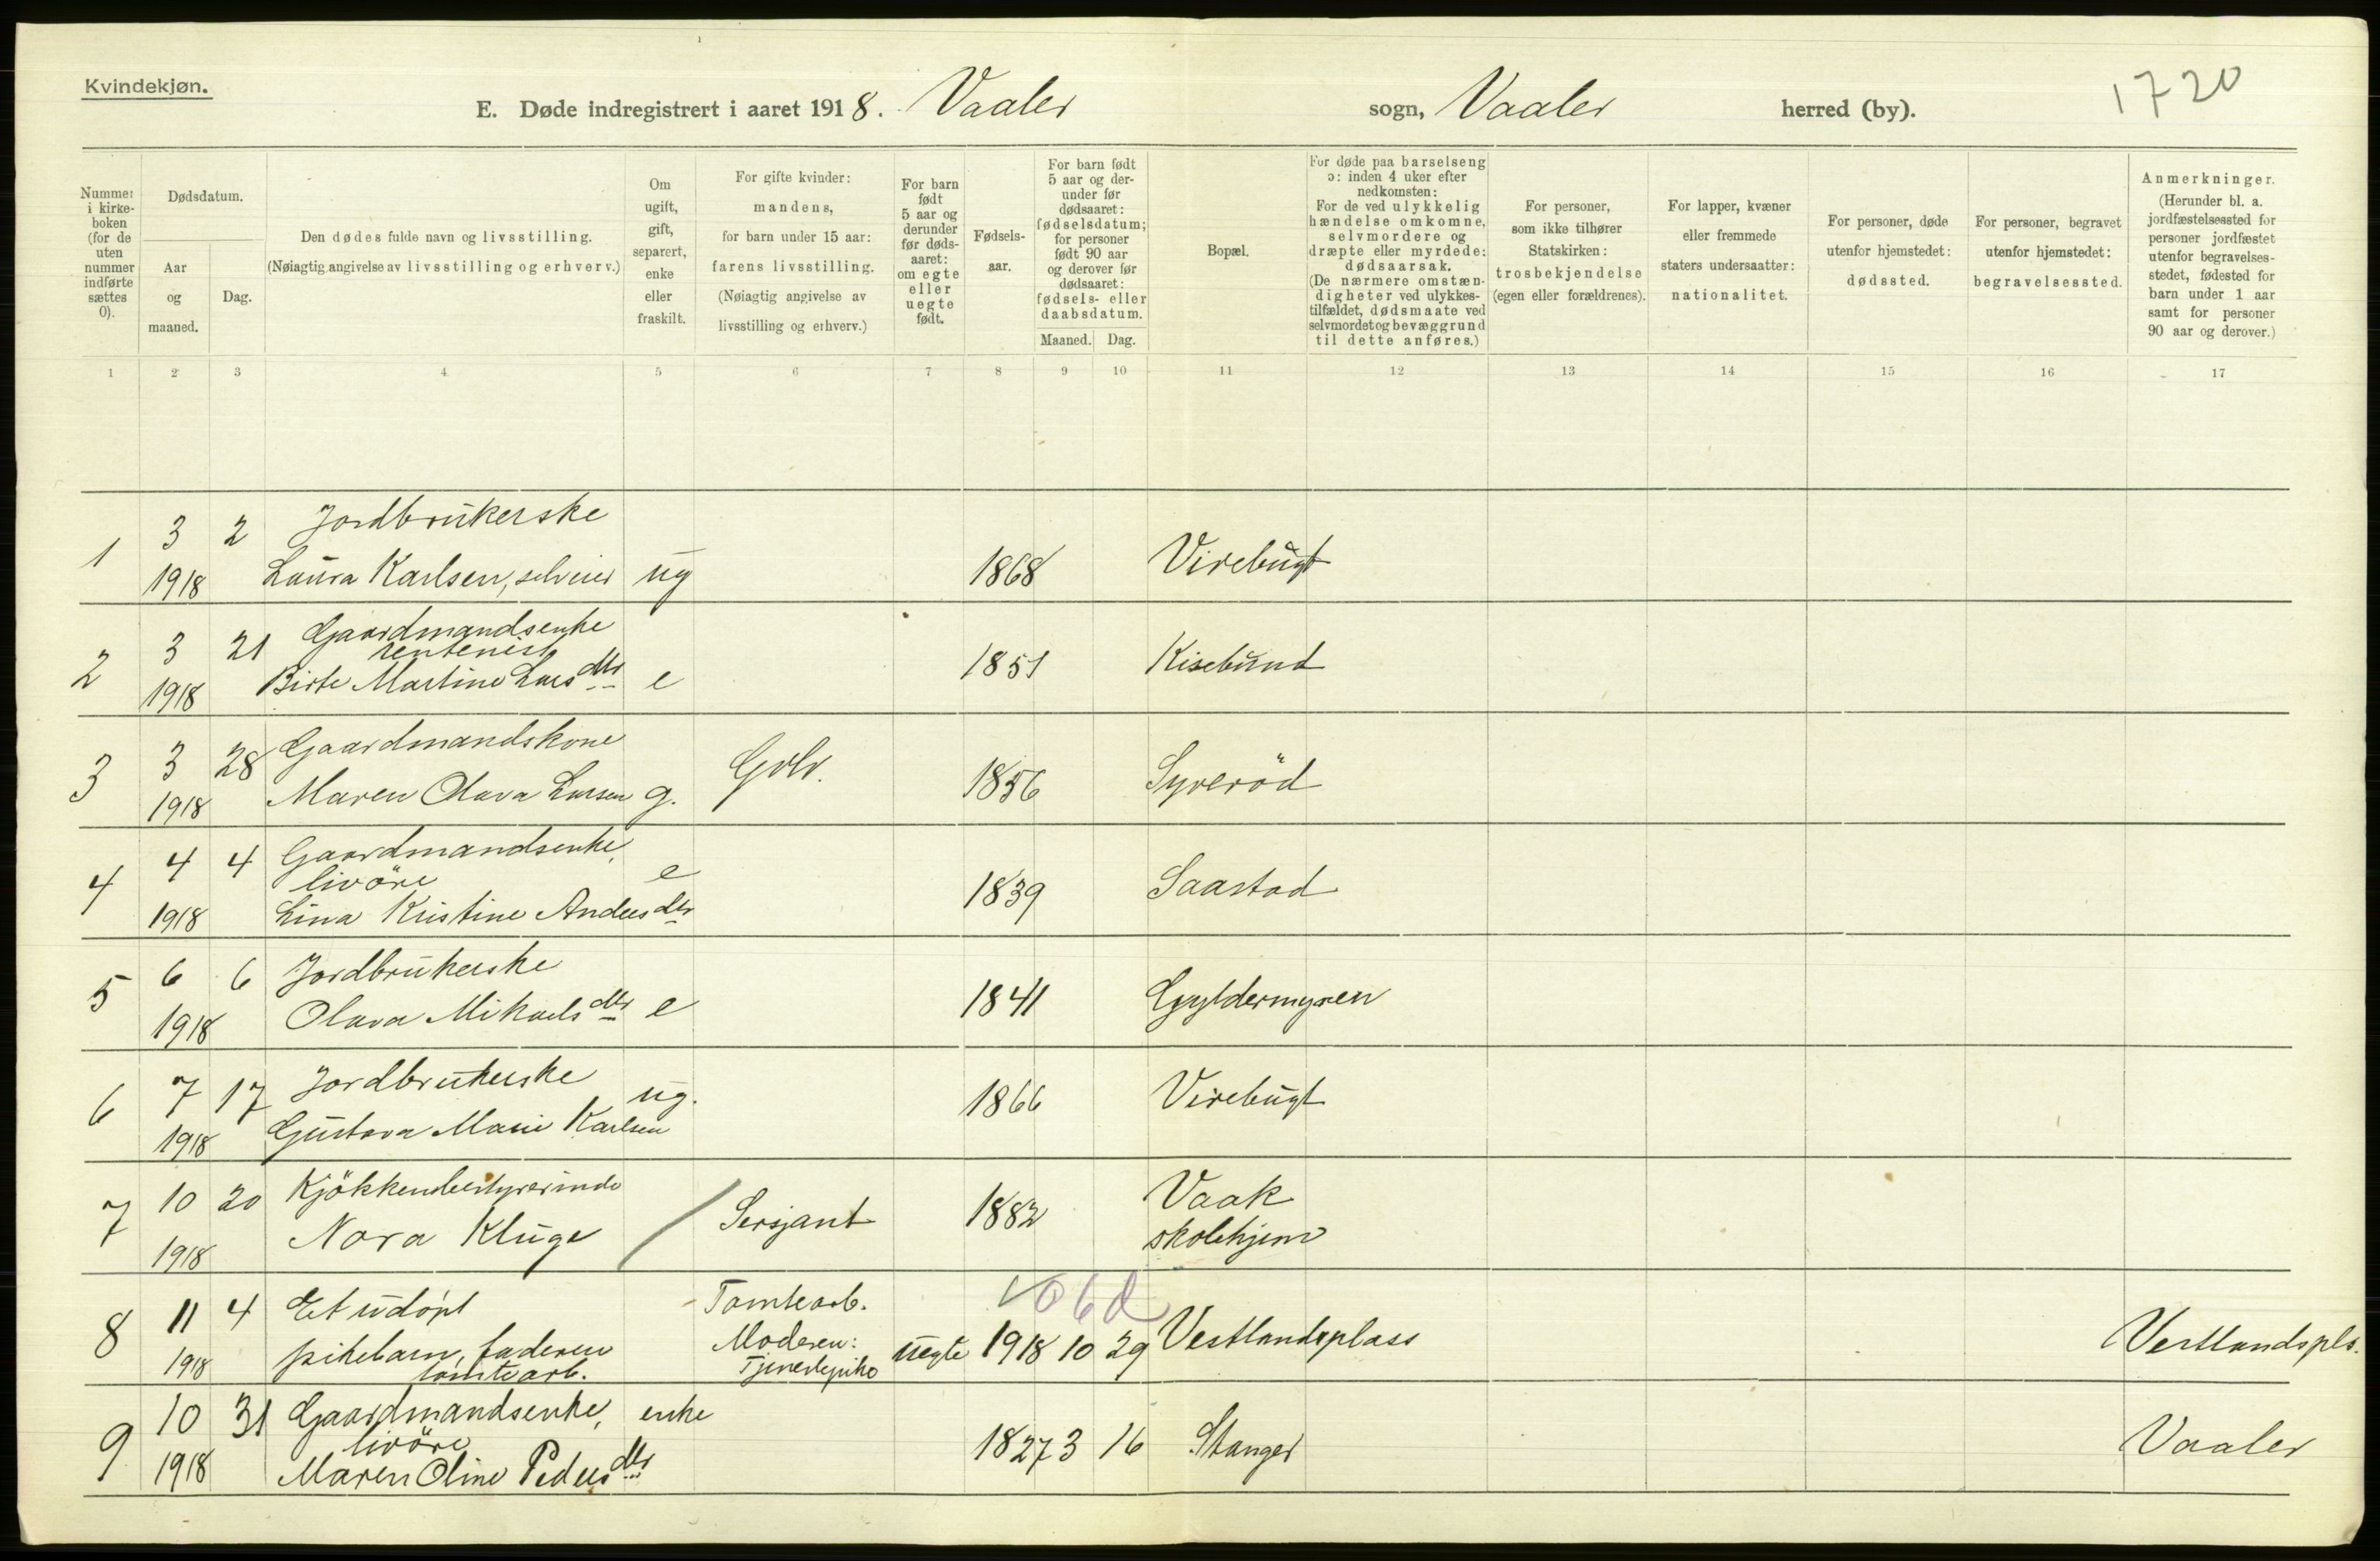 Kvindekjøn.
E. Døde indregistrert i aaret 1918. Vaaler sogn, Vaaler herred (by).
1720
Nummer i kirkeboken (for de uten nummer indførte sættes 0).
Dødsdatum.
Aar og maaned.
Dag.
Den dødes fulde navn og livsstilling.
(Nøiagtig angivelse av livsstilling og erhverv.)
Om ugift, gift, separert, enke eller fraskilt.
For gifte kvinder: mandens, for barn under 15 aar: farens livsstilling. (Nøiagtig angivelse av livsstilling og erhverv.)
For barn født 5 aar og derunder før dødsaaret: om egte eller uegte født.
Fødselsaar.
For barn født 5 aar og derunder før dødsaaret: fødselsdatum; for personer født 90 aar og derover før dødsaaret: fødsels- eller daabsdatum.
Maaned. Dag.
Bopæl.
For døde paa barselseng ɔ: inden 4 uker efter nedkomsten: For de ved ulykkelig hændelse omkomne, selvmordere og dræpte eller myrdede: dødsaarsak. (De nærmere omstændigheter ved ulykkestilfældet, dødsmaate ved selvmordet og bevæggrund til dette anføres.)
For personer, som ikke tilhører Statskirken: trosbekjendelse (egen eller forældrenes).
For lapper, kvæner eller fremmede staters undersaatter: nationalitet.
For personer, døde utenfor hjemstedet: dødssted.
For personer, begravet utenfor hjemstedet: begravelsessted.
Anmerkninger. (Herunder bl. a. jordfæstelsessted for personer jordfæstet utenfor begravelsesstedet, fødested for barn under 1 aar samt for personer 90 aar og derover.)
1 2 3 4 5 6 7 8 9 10 11 12 13 14 15 16 17
1 3 2 Jordbrukerske
1918 Laura Karlsen, selveier ug 1868 Virebugt
2 3 21 Gaardmandsenke
rentenist
1918 Birte Martine Larsdtr e 1851 Kisebund
3 3 28 Gaardmandskone
1918 Maren Olava Larsen g. Grdb. 1856 Syrerød
4 4 4 Gaardmandsenke,
livøre e
1918 Lina Kristine Andersdtr 1839 Saastad
5 6 6 Jordbrukerske
1918 Olava Mikaelsdtr e 1841 Gyldermyren
6 7 17 Jordbrukerske
1918 Gustava Marie Karlsen ug. 1866 Virebugt
7 10 20 Kjökkenbestyrerinde
1918 Nora Kluge / Sersjant 1882 Vaak
skolehjem
8 11 4 Et udöpt
1918 pikebarn, faderen
tomtearb.
Tomtearb.
Moderen:
Tjenestepike
uegte 1918 10 29 Vestlandsplass Vestlandspls.
9 10 31 Gaardmandsenke, enke
livöre
1918 Maren Oline Pedersdtr 1827 3 16 Stanger Vaaler